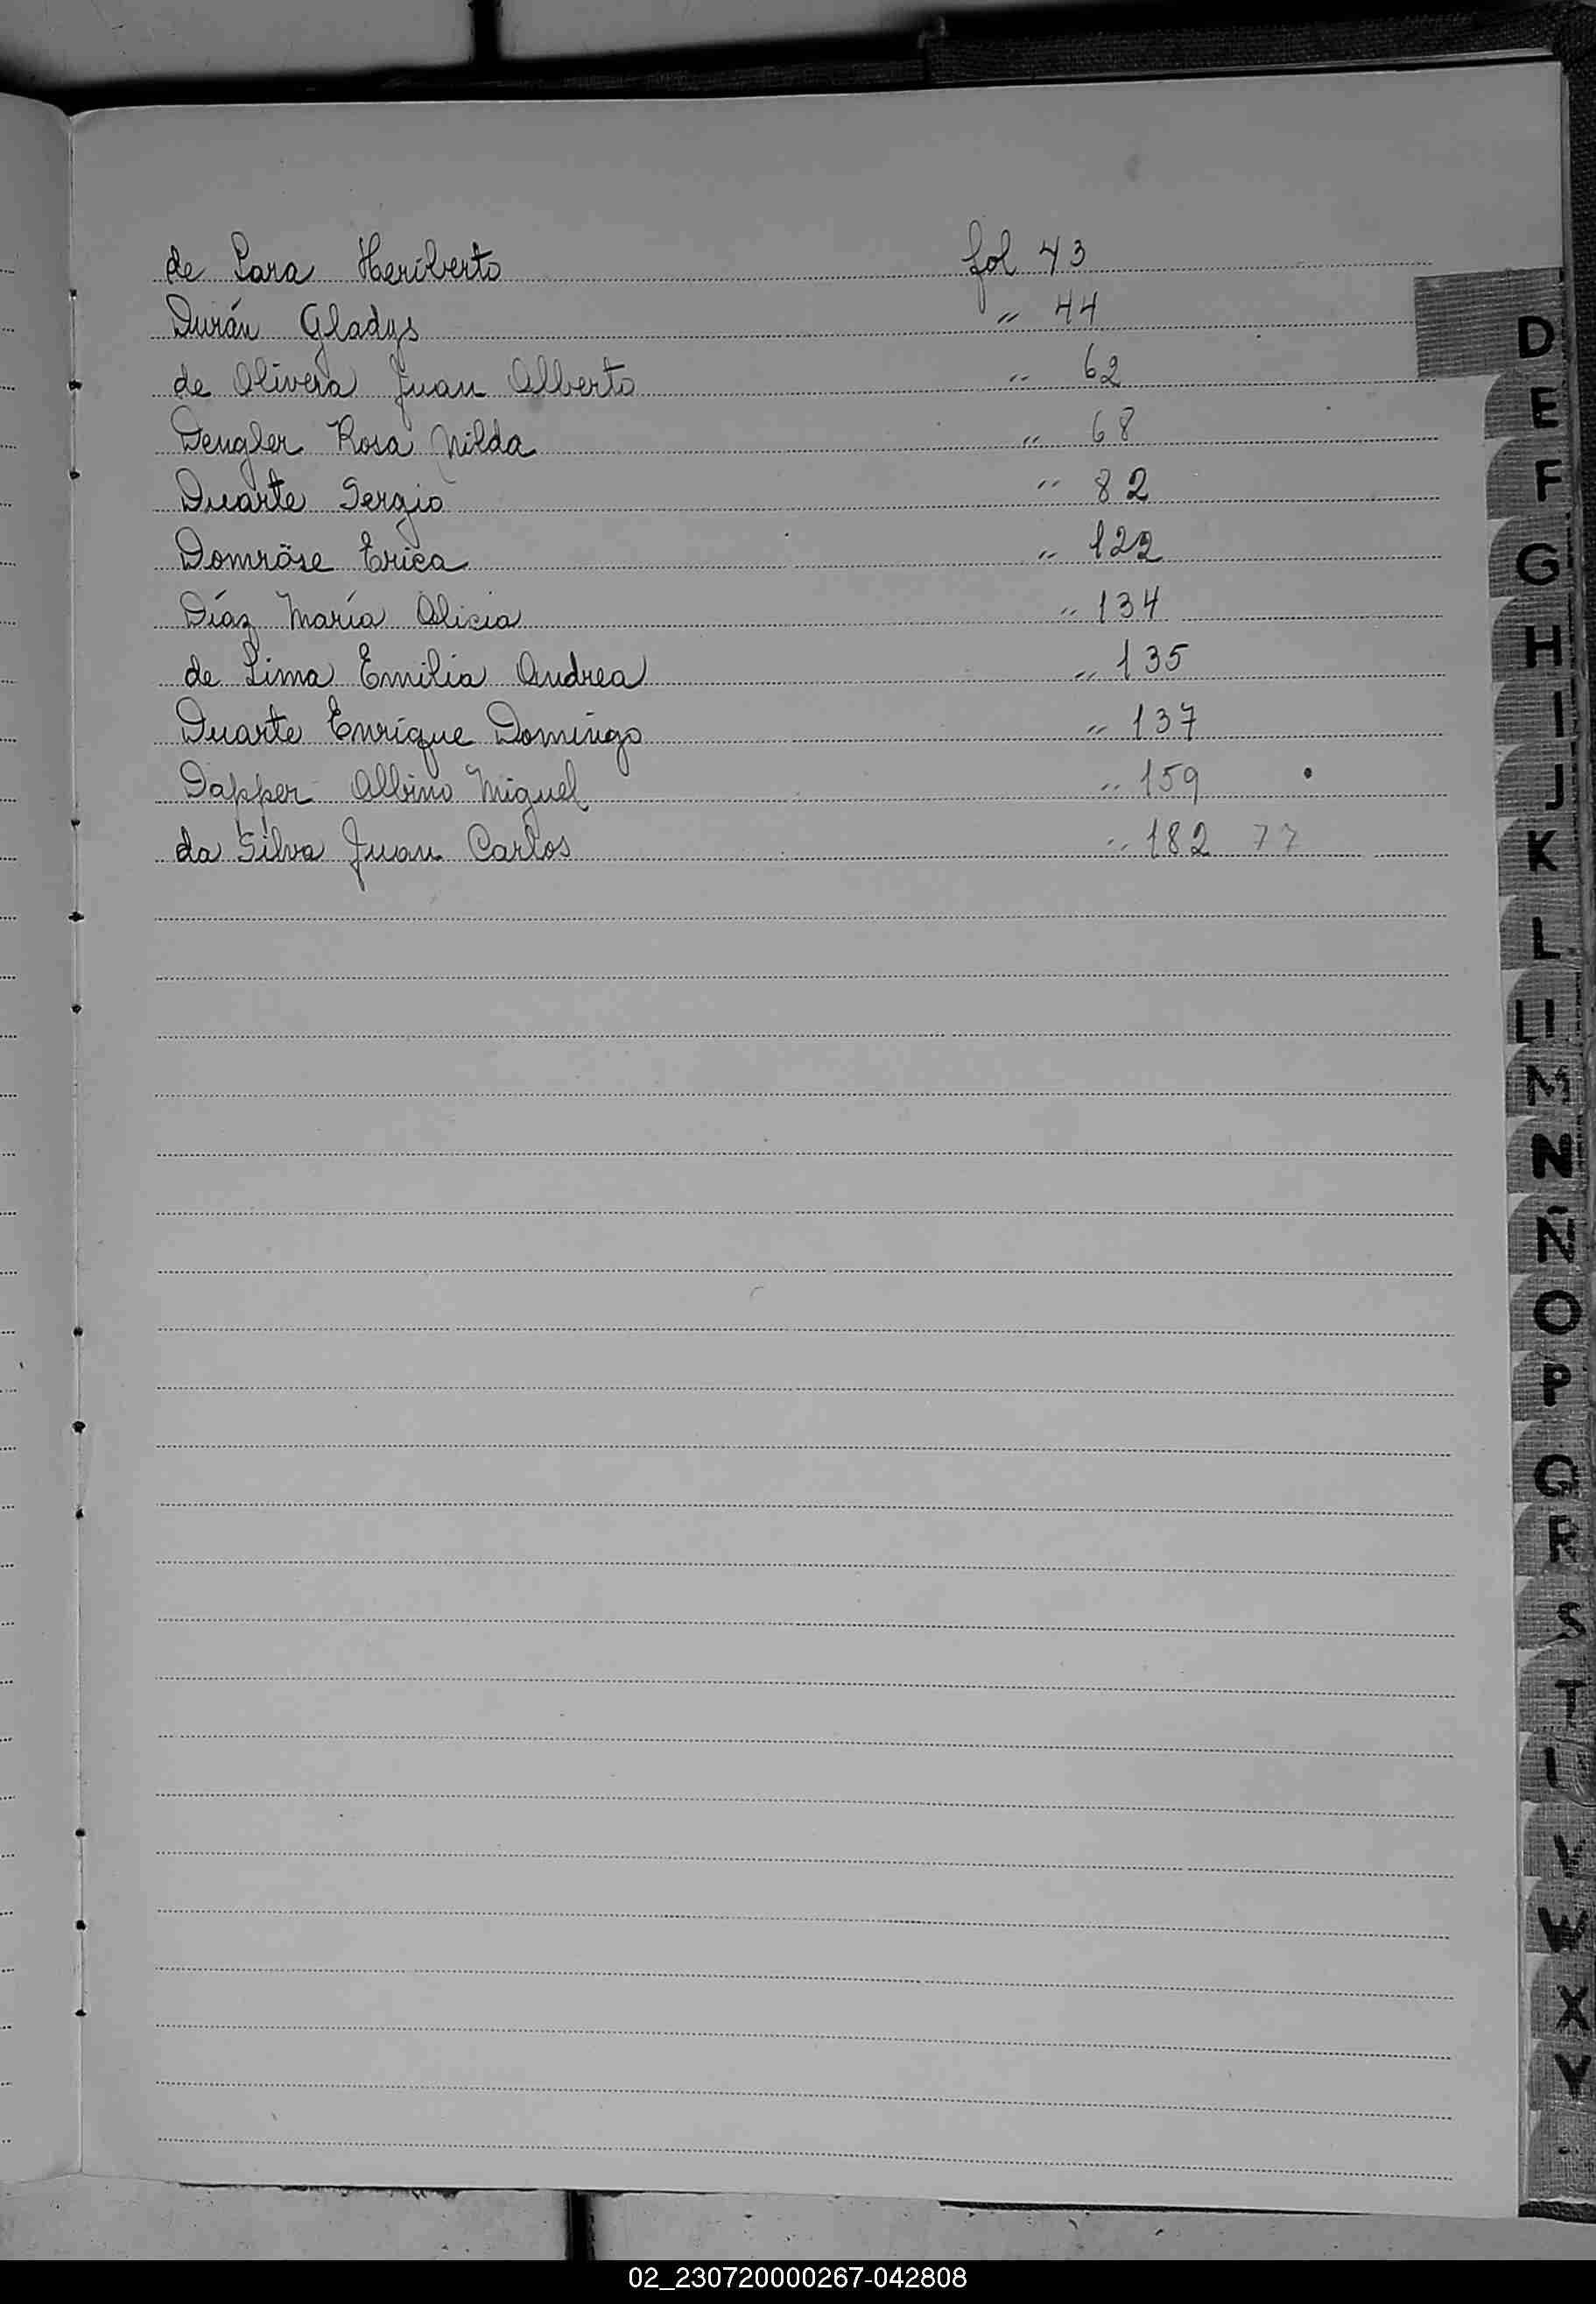 de Lara Heriberto fol 43
Durán Gladys " 44
de Olivera Juan Alberto " 62
Dengler Rosa Nilda " 68
Duarte Sergio " 82
Domröse Erica " 122
Díaz María Alicia " 134
de Lima Emilia Andrea " 135
Duarte Enrique Domingo " 137
Dapper Albino Miguel " 159
da Silva Juan Carlos " 182 77
D
E
F
G
H
I
J
K
L
Ll
M
N
Ñ
O
P
Q
R
S
T
V
W
X
Y
02_230720000267-042808